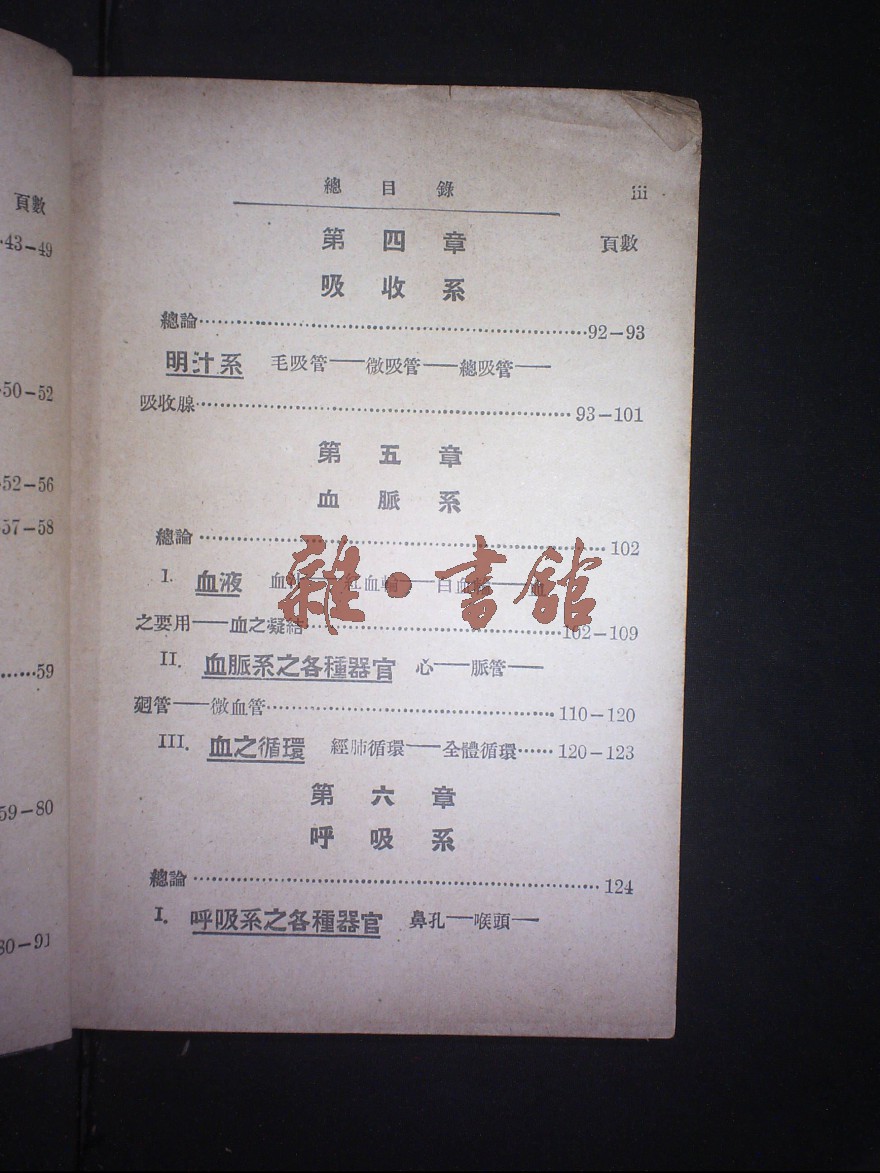 頁數
43–49
50–52
52–56
57–58
……59
59–80
80–91
總目錄 iii
第四章 頁數
吸收系
總論……92–93
明汁系 毛吸管——微吸管——總吸管——
吸收腺……93–101
第五章
血脈系
總論……102
I. 血液 紅血輪——白血輪——血
之要用——血之凝結……102–109
II. 血脈系之各種器官 心——脈管——
廻管——微血管……110–120
III. 血之循環 經肺循環——全體循環……120–123
第六章
呼吸系
總論……124
I. 呼吸系之各種器官 鼻孔——喉頭——
雜·書館